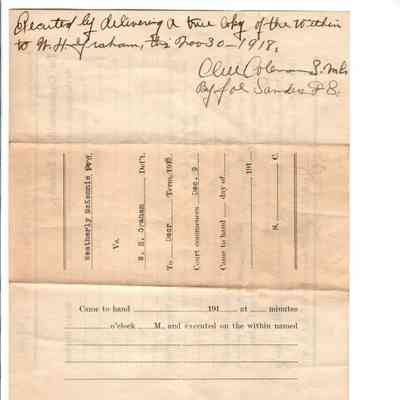 Executed by delivering a true copy of the within
to W. H. Graham, this Nov 30 - 1918.
Cliff Coleman S. M Co
By Joe Sanders D S.
Weatherly McKennie
Vs.
W. H. Graham Def't.
To Decr. Term, 191
Court commences Dec. 9
Came to hand ___ day of
191
S. C.
Came to hand ___ 191 ___ at ___ minutes
___ o'clock ___ M., and executed on the within named